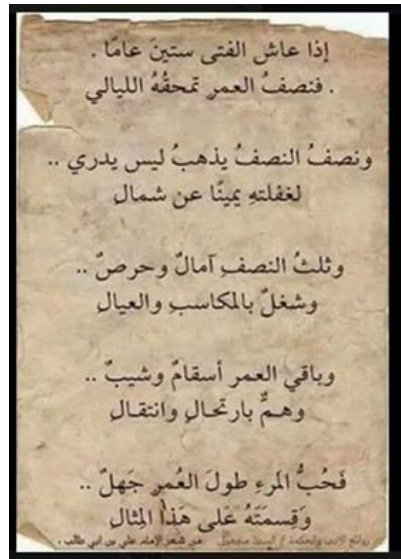 إذا عاش الفتى ستينَ عامًا .
. فنصفُ العمرِ تمحقُهُ الليالي
ونصفُ النصفُ يذهبُ ليس يدري ..
لغفلتهِ يمينًا عن شمالِ
وثلثُ النصفِ آمالٌ وحرصٌ ..
وشغلٌ بالمكاسبِ والعيالِ
وباقي العمر أسقامٌ وشيبٌ ..
وهمٌّ بارتحالِ وانتقالِ
فَحُبُّ المَرءِ طولَ العُمرِ جَهلٌ ..
وَقِسمَتَهُ عَلى هَذا المِثالِ
روائع الأدب والحكمة / من شعر الإمام علي بن أبي طالب .